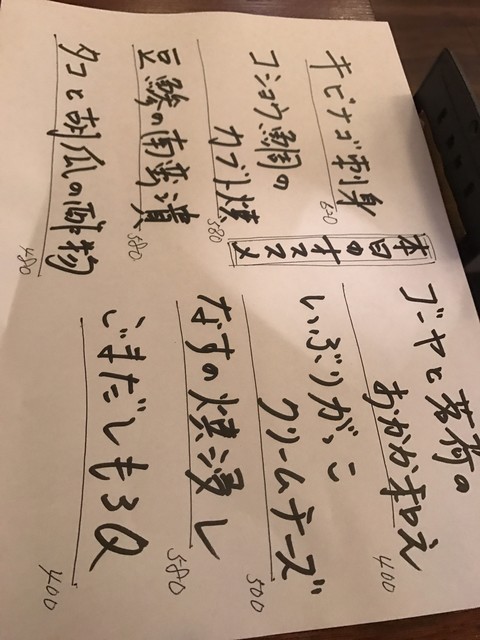 本日のオススメ
キビナゴ刺身
620
コショウ鯛の
カブト焼
580
豆鯵の南蛮漬
580
タコと胡瓜の酢物
480
ゴーヤと茗荷の
おかか和え
400
いぶりがっこ
クリームチーズ
500
なすの焼浸し
580
ごまだしもろQ
400